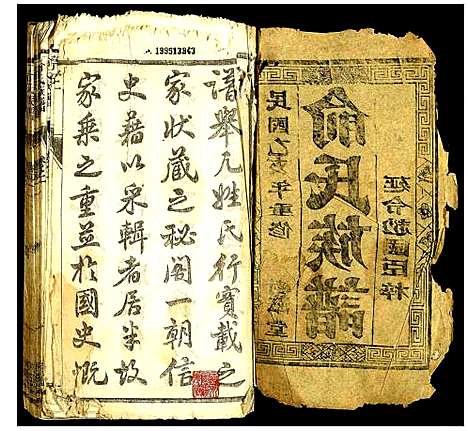 俞氏族譜
年重修
民國
臣梓
堂
譜舉凡姓氏行實載之
家狀藏之秘閣一朝信
史藉以采輯者居半故
家乘之重並於國史慨